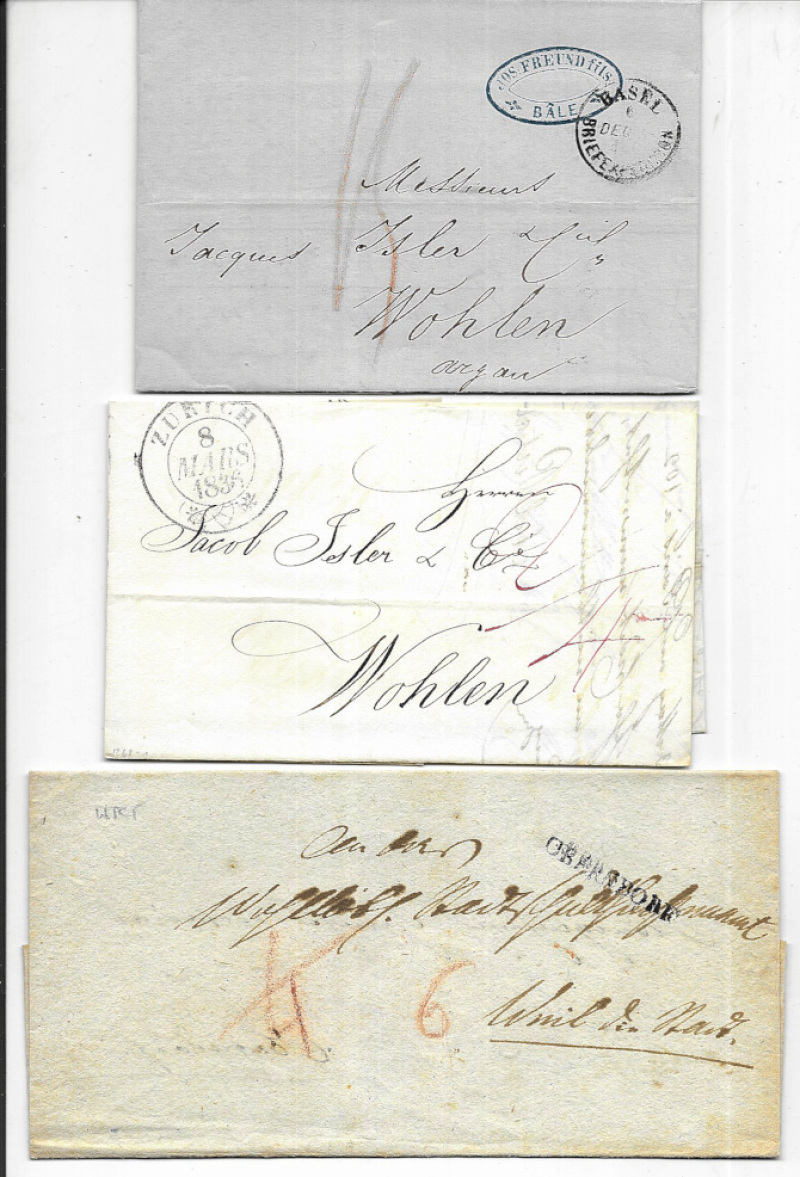 JOS. FREUND fils
BÂLE
BASEL
6
DEC
BRIEFEXPEDITION
15
Messieurs
Jacques Isler & Cie
Wohlen
argau
ZÜRICH
8
MARS
183
Herren
Jacob Isler & Cie
Wohlen
4
OBERNDORF
An das
Wohllöbl. Stadtschultheißenamt
4
6
Weil die Stadt.